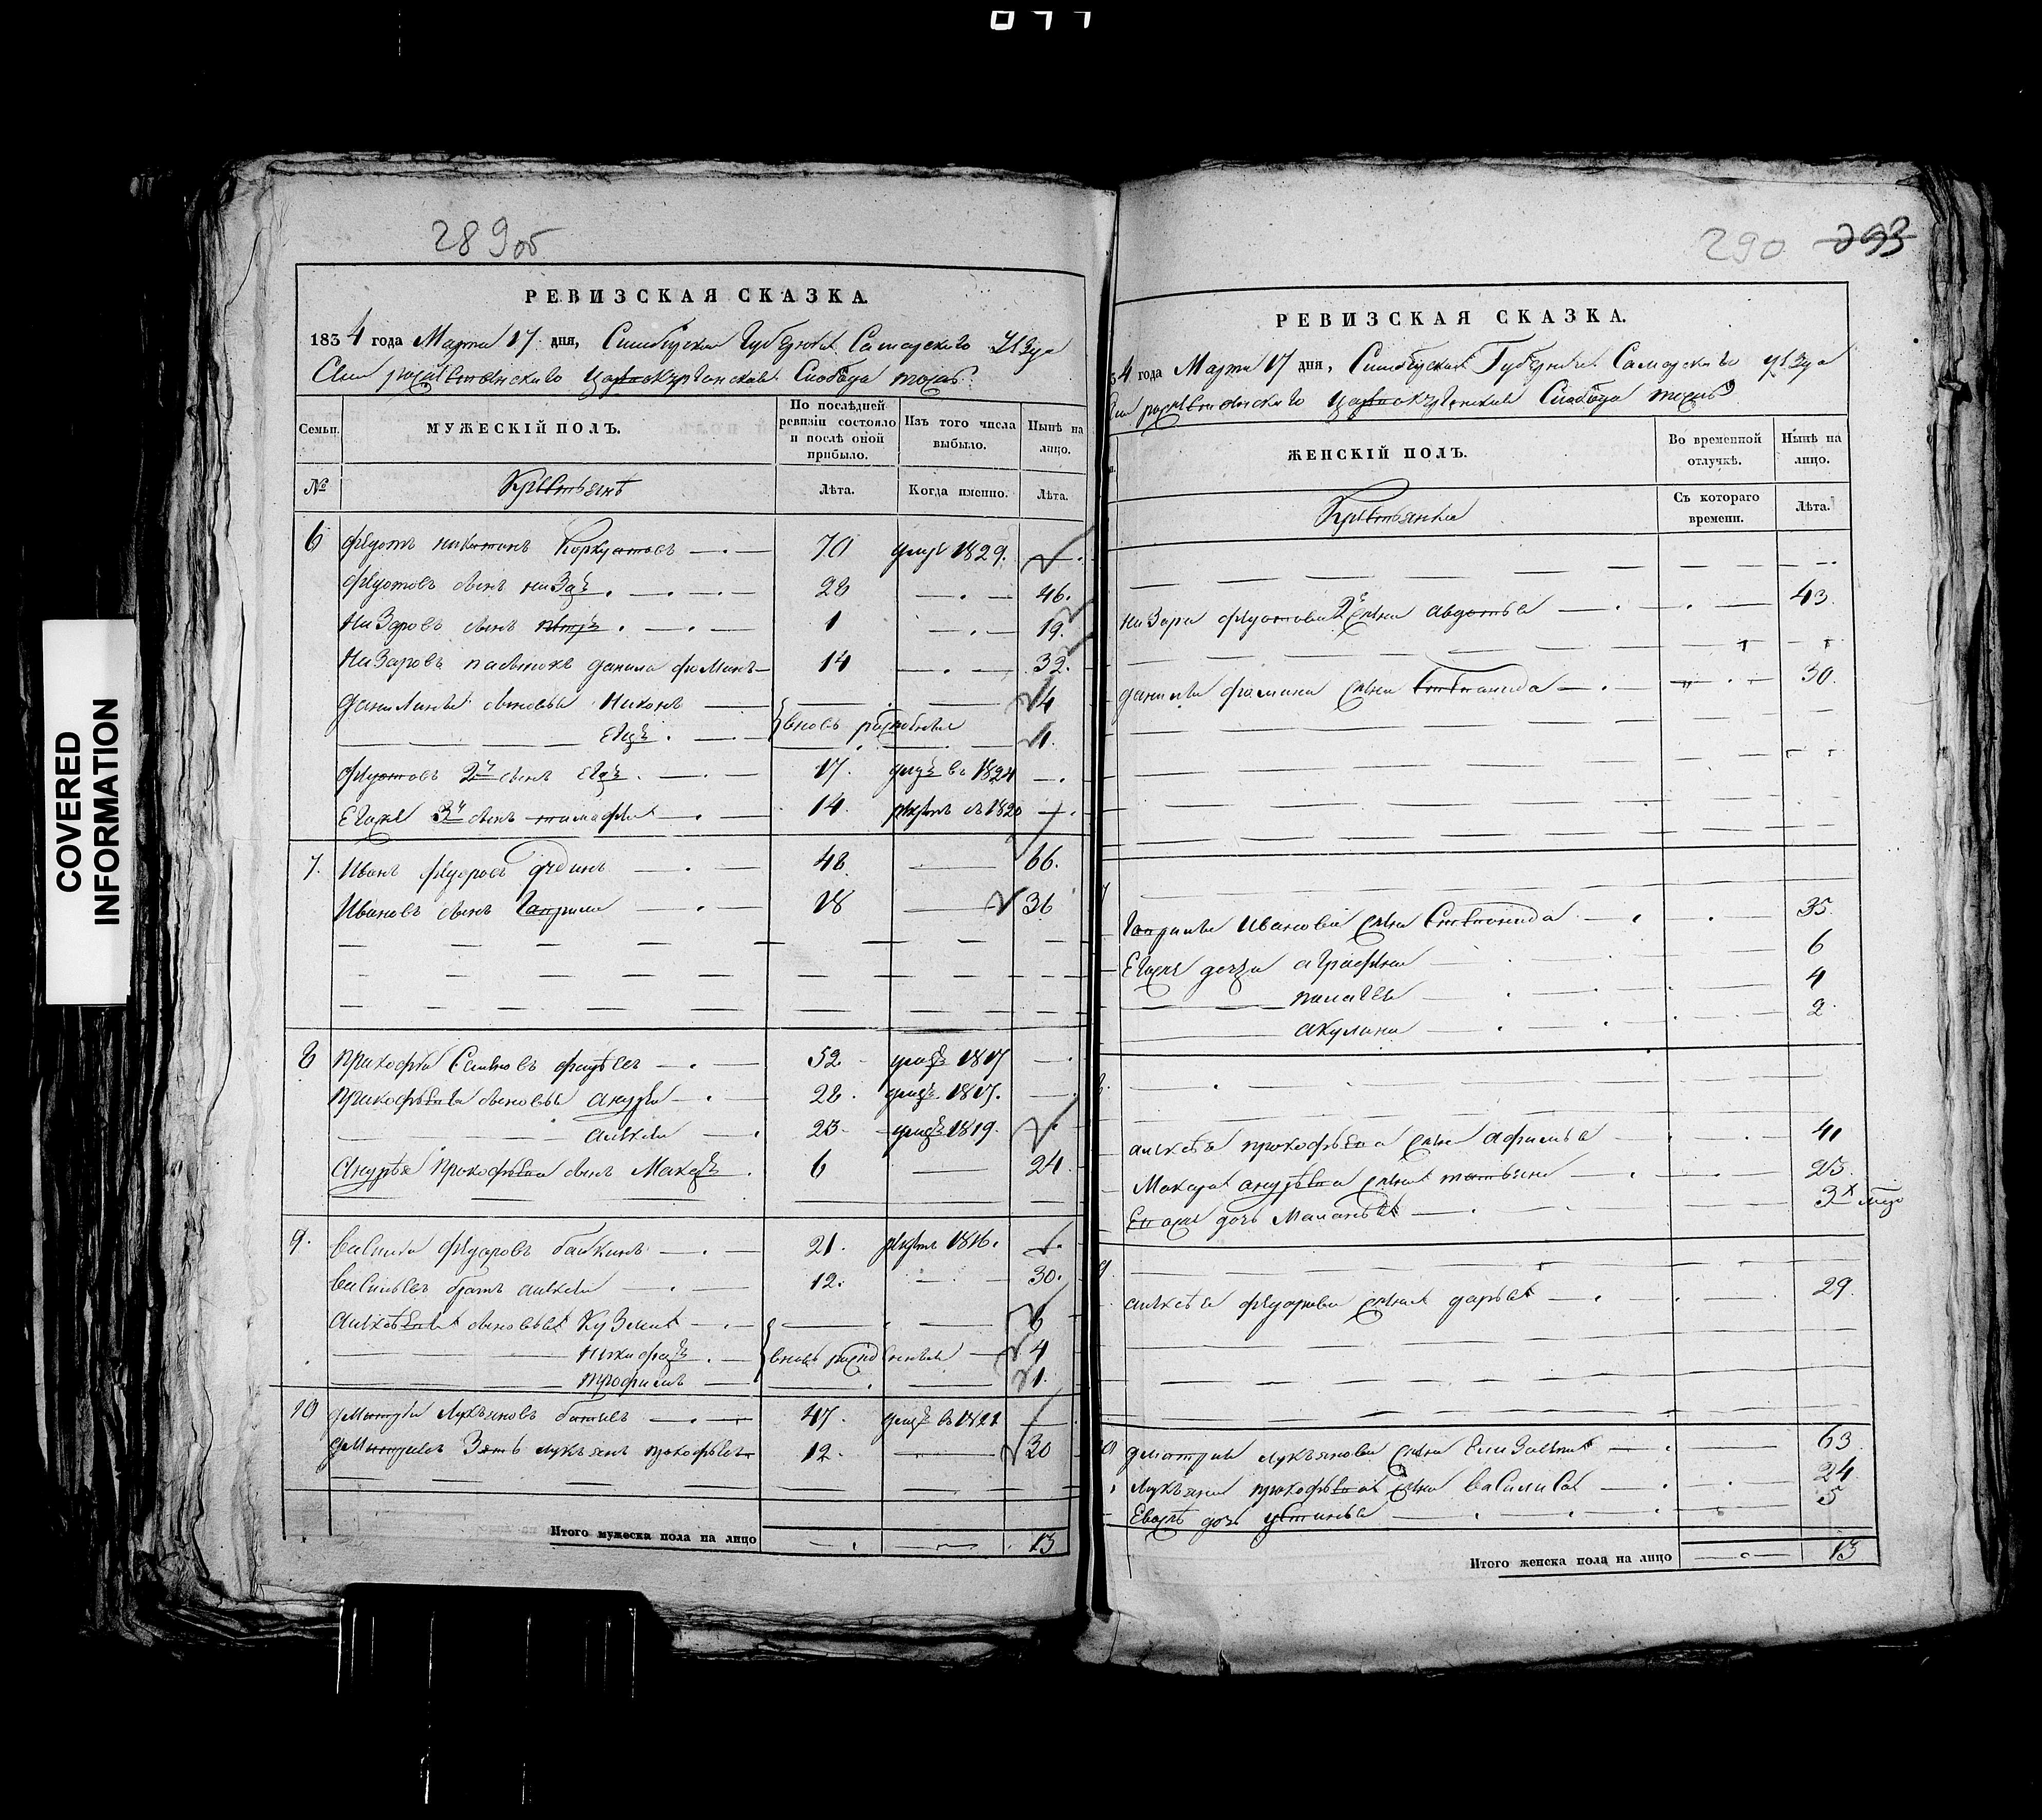 077
COVERED
INFORMATION
289об
РЕВИЗСКАЯ СКАЗКА.
1834 года Марта 17 дня, Симбирской Губернии Самарского Уезда
Слобода тожъ
Семьи.
МУЖЕСКІЙ ПОЛЪ.
По послѣдней ревизіи состояло и послѣ оной прибыло.
Изъ того числа выбыло.
Нынѣ на лицо.
№
Крестьянѣ
Лѣта.
Когда именно.
Лѣта.
6 Федотъ Никитинъ 70 умре 1829.
Федотовъ сынъ Назаръ 28 46.
Назаровъ сынъ Петръ 1 19.
Назаровъ пасынокъ Данила Фоминъ 14 32.
Данилины сыновья Никонъ 4
Егоръ вновь рожденные 1.
Федотовъ 2й сынъ Егоръ 17. умеръ в 1824
Егоже 3й сынъ Тимофей 14 рекрутъ въ 1820
7. Иванъ Федоровъ 48 66.
Ивановъ сынъ Гаврила 18 36
8 Прокофей Семеновъ 52 умеръ 1817
Прокофьева сыновья Андрей 22. умеръ 1817.
Алексей 23 умеръ 1819.
Андрѣя Прокофьева сынъ Макаръ 6 24.
9. Василей Федоровъ 21. рекрутъ 1816.
Васильевъ братъ Алексей 12. 30.
Алексѣева сыновья Кузма 6
Никифоръ вновь рожденные 4
Трофимъ 1.
10 Дмитрей Лукьяновъ 47. умеръ въ 1821
Дмитриевъ Зять Лукьянъ Прокофьевъ 12. 30
Итого мужеска пола на лицо 13
290 293
РЕВИЗСКАЯ СКАЗКА.
4 года Марта 17 дня, Симбирской Губернии Самарского уезда
Слобода тожъ
ЖЕНСКІЙ ПОЛЪ.
Во временной отлучкѣ.
Нынѣ на лицо.
Крестьянки
Съ котораго времени.
Лѣта.
Назара Федотова 2я жена Авдотья 43.
Данилы Фомина жена Степанида 30.
Гаврилы Иванова жена Степанида 35.
Егоже дочери Аграфена 6
Палагея 4
Акулина 2.
Алексѣя Прокофьева жена Афимья 41
Макара Андреева жена Татьяна 25.
Его же дочь Маланья 3
9 Алексѣя Федорова жена Дарья 29.
10 Дмитрия Лукьянова жена 63
Лукьяна Прокофьева жена Василиса 24
Евоже дочь Устинья 5
Итого женска пола на лицо 13